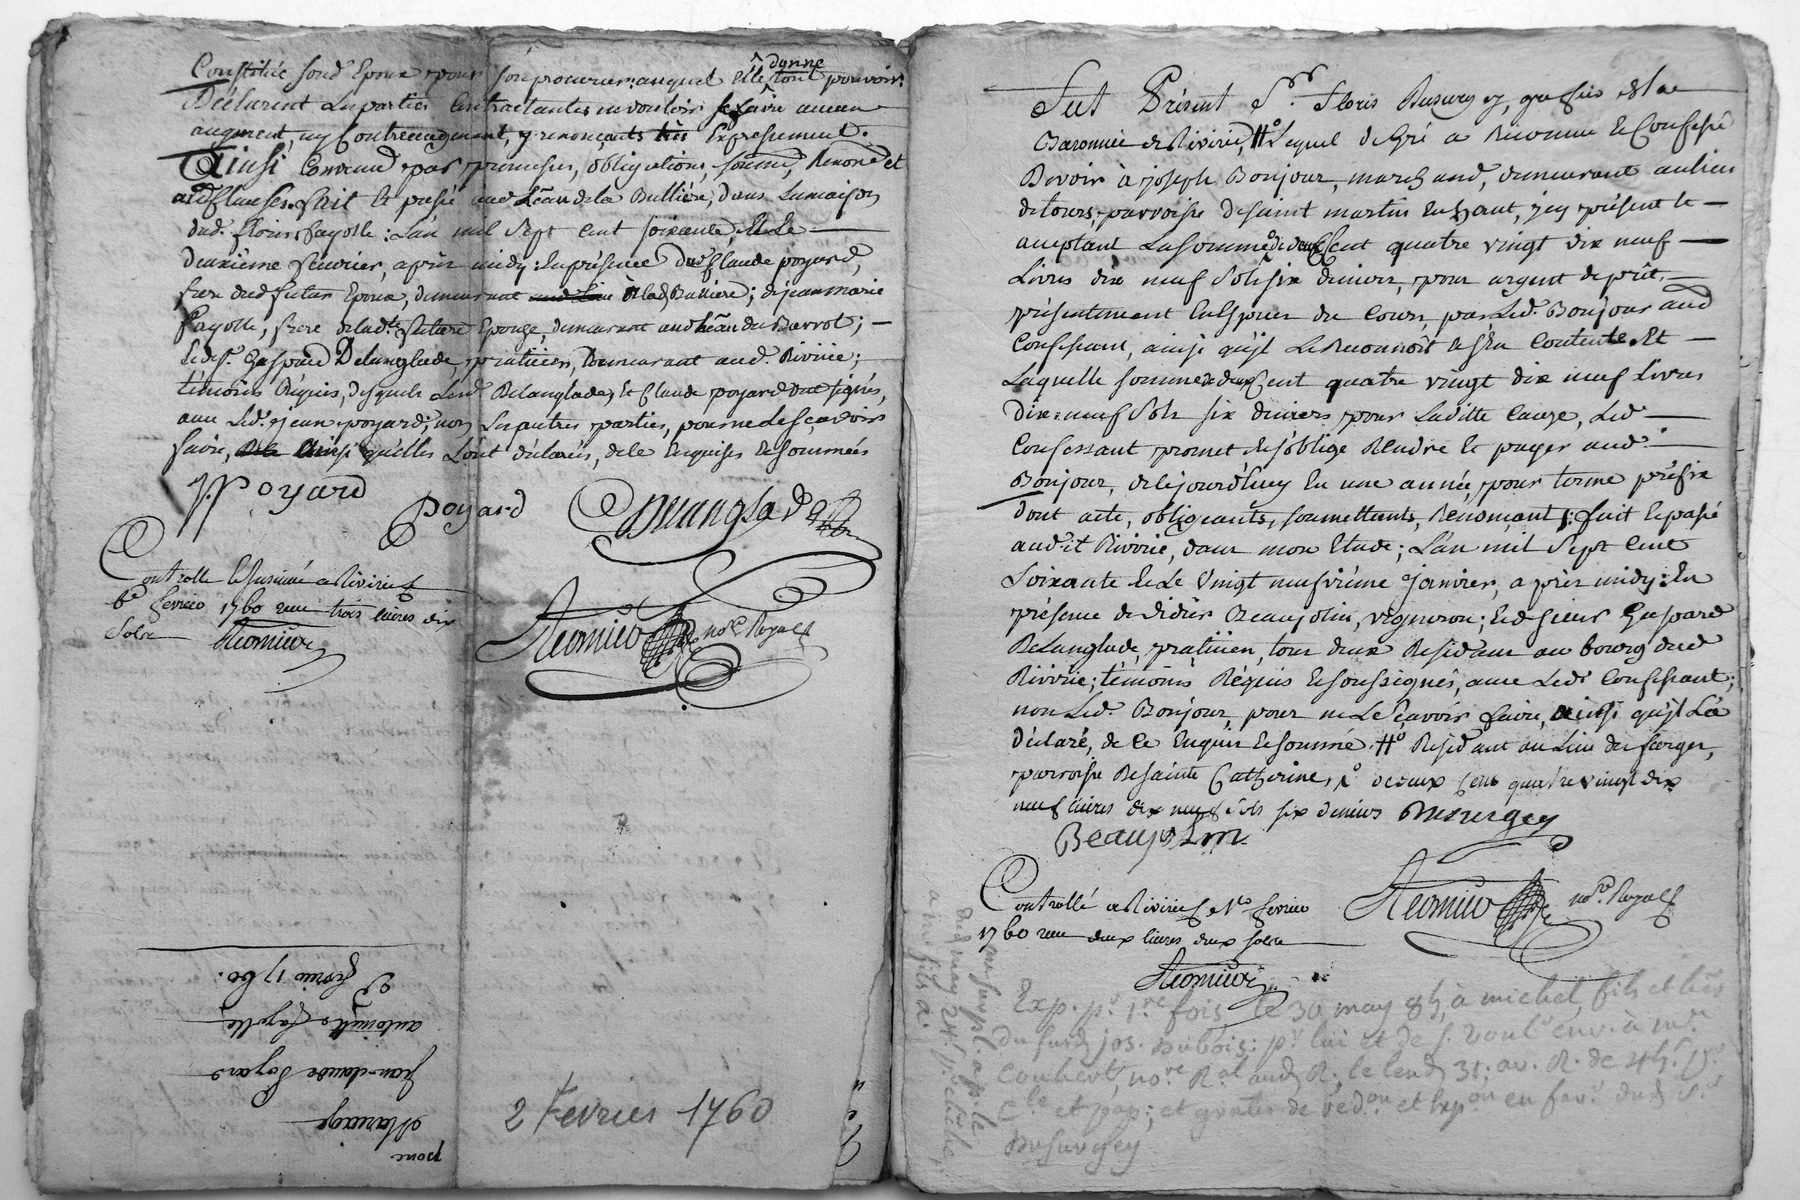 Constitué sond. Epoux pour son procureur, auquel elle donne tout pouvoir:
Déclarent Les parties Contractantes ne vouloir se faire aucun
augment, ny Contreaugment, y renonçants très Expressement.
Ainsi Convenu par promesses, obligations, soumis, Renoncé et
auts clauses. fait et passé aud. lieu de la Bullière, dans La maison
dud. floris fayolle: L'an mil Sept Cent soixante, et Le
deuxième feuvrier, après midy: En présence dud. Claude poyard,
frere dud. futur Epoux, demeurant de lad. Bulliere; de jean marie
fayolle, frere de lad.te future Epouze, demeurant aud. lieu du Barrot;
et de s.r Gaspard Delanglade, praticien, Demeurant aud. Rivirie;
témoins Réquis, desquels Led. Delanglade, et Claude poyard ont signés,
avec Led. jean poyard; non Les autres parties, pour ne Le sçavoir
faire, Ainsi qu'elles L'ont déclarés, de le Enquises et sommées
J. Poyard
Poyard
Delanglade
Controllé et Insinué a Rivirie le
6e fevrier 1760 reçu trois livres dix
Sols
not.e Royal
pour
Mariage
Jean-claude Poyard
antoinette fayolle
2e
fevrier 1760.
2 Fevrier 1760
Fut Présent S.r Floris Busurgey, greffier de la
Baronnie de Rivirie, # Lequel de gré a Reconnu et Confessé
Devoir à joseph Bonjour, marchand, demeurant au lieu
de tours, parroisse de saint martin En haut, jcy présent et
acceptant La somme de deux Cent quatre vingt dix neuf
Livres dix neuf Sols six deniers, pour argent de prêt,
présentement En Espèces du Cours, par Led. Bonjour aud.
Confessant, ainsi qu'jl Le Reconnoit et s'En Contente. Et
Laquelle somme de deux Cent quatre vingt dix neuf Livres
Dix-neuf Sols six deniers, pour Laditte Cauze, Led.
Confessant promet et s'oblige Rendre et payer aud.
Bonjour, de cejourd'huy En une année, pour terme préfix
Dont acte, obligeants, soumettants, Renonçant: fait et passé
aud.it Rivirie, dans mon Etude; L'an mil Sept Cent
Soixante et Le Vingt neufvième janvier, a près midy: En
présence de Didier Beaujolin, vigneron; et de sieur Gaspard
De Langlade, praticien, tous deux Residants au bourg dud.
Rivirie; témoins Réquis et soussignés, avec Led. Confessant;
non Led. Bonjour, pour ne Le sçavoir faire, Ainsi qu'jl L'a
Déclaré, de ce Enquis et sommé. # Residant au Lieu du farger,
parroisse De Sainte Catherine, deux Cent quatre vingt dix
neuf livres dix neuf sols six deniers Busurgey
Beaujolin
Controllé a Rivirie le 1er fevrier
1760 reçu deux livres deux sols
not.re Royal
Exp. p.r 1.re fois le 30 may 84, à michel, fils et
du jos. Dubois: p.r lui et de env. à m.e
not.re R.al aud. R., le lend. 31; av. R. de
C.le et pap; et en fav.r dud. S.r
Busurgey